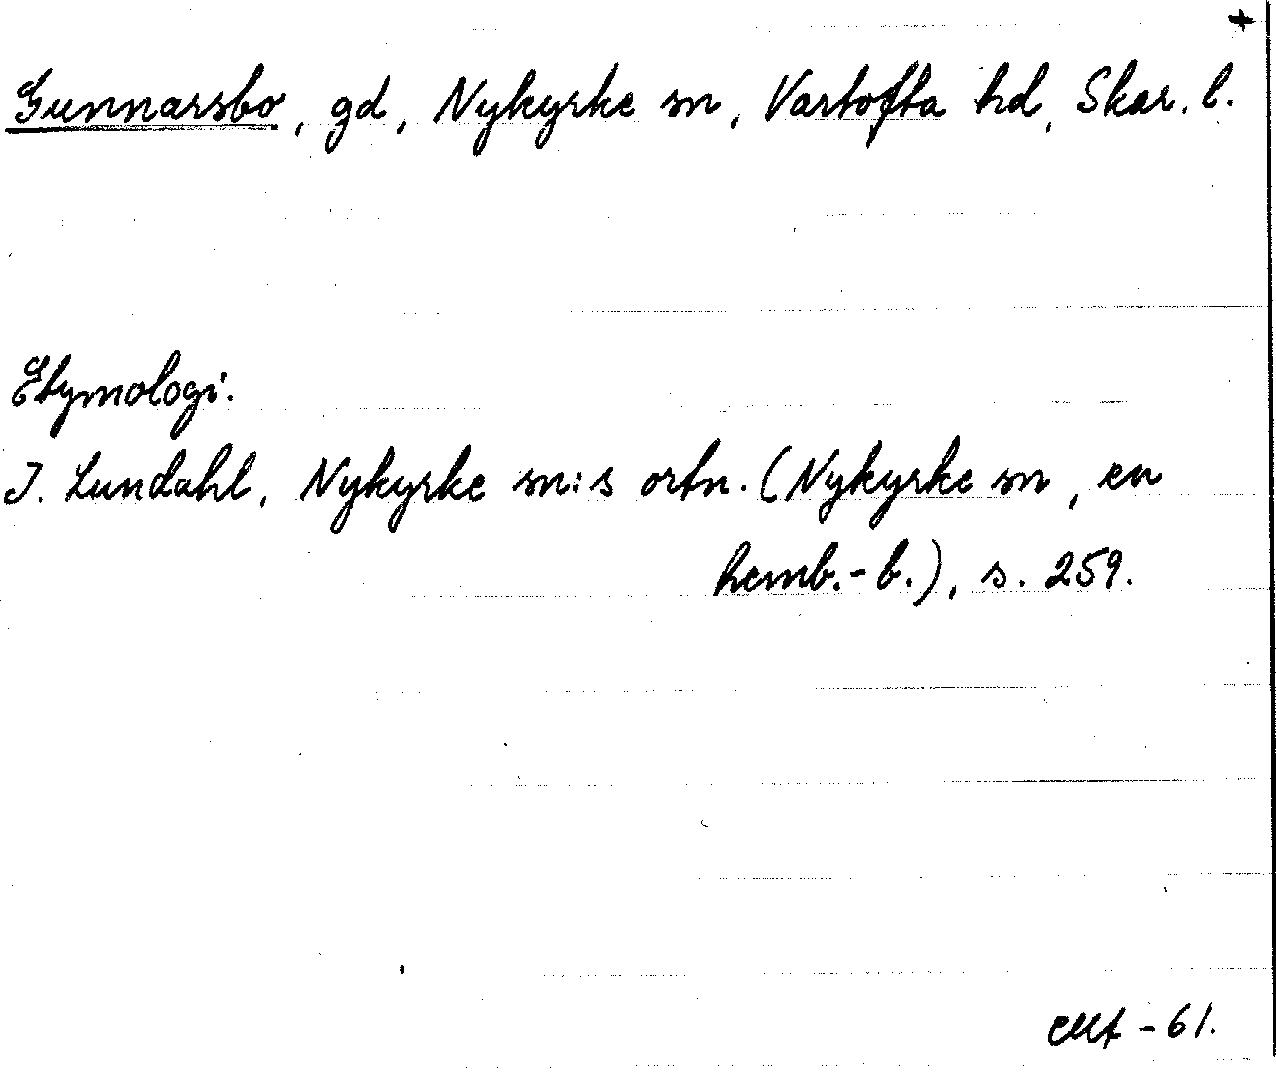 +
Gunnarsbo, gd, Nykyrke sn, Vartofta hd, Skar. l.
Etymologi.
I. Lundahl, Nykyrke sn:s ortn. (Nykyrke sn, en
hemb.-b.), s. 259.
-61.